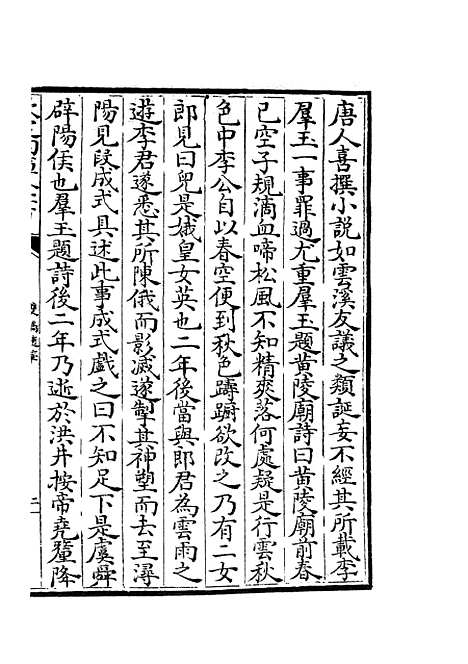 唐人喜撰小說如雲溪友議之類誕妄不經其所載李
羣玉一事罪過尤重羣玉題黄陵廟詩曰黄陵廟前春
已空子規滴血啼松風不知精爽落何處疑是行雲秋
色中李公自以春空便到秋色躊蹰欲改之乃有二女
郎見曰兒是娥皇女英也二年後當與郎君為雲雨之
遊李君遂悉其所陳俄而影滅遂掣其神塑而去至潯
陽見段成式具述此事成式戲之曰不知足下是虞舜
辟陽侯也羣玉題詩後二年乃逝於洪井按帝堯釐降
二